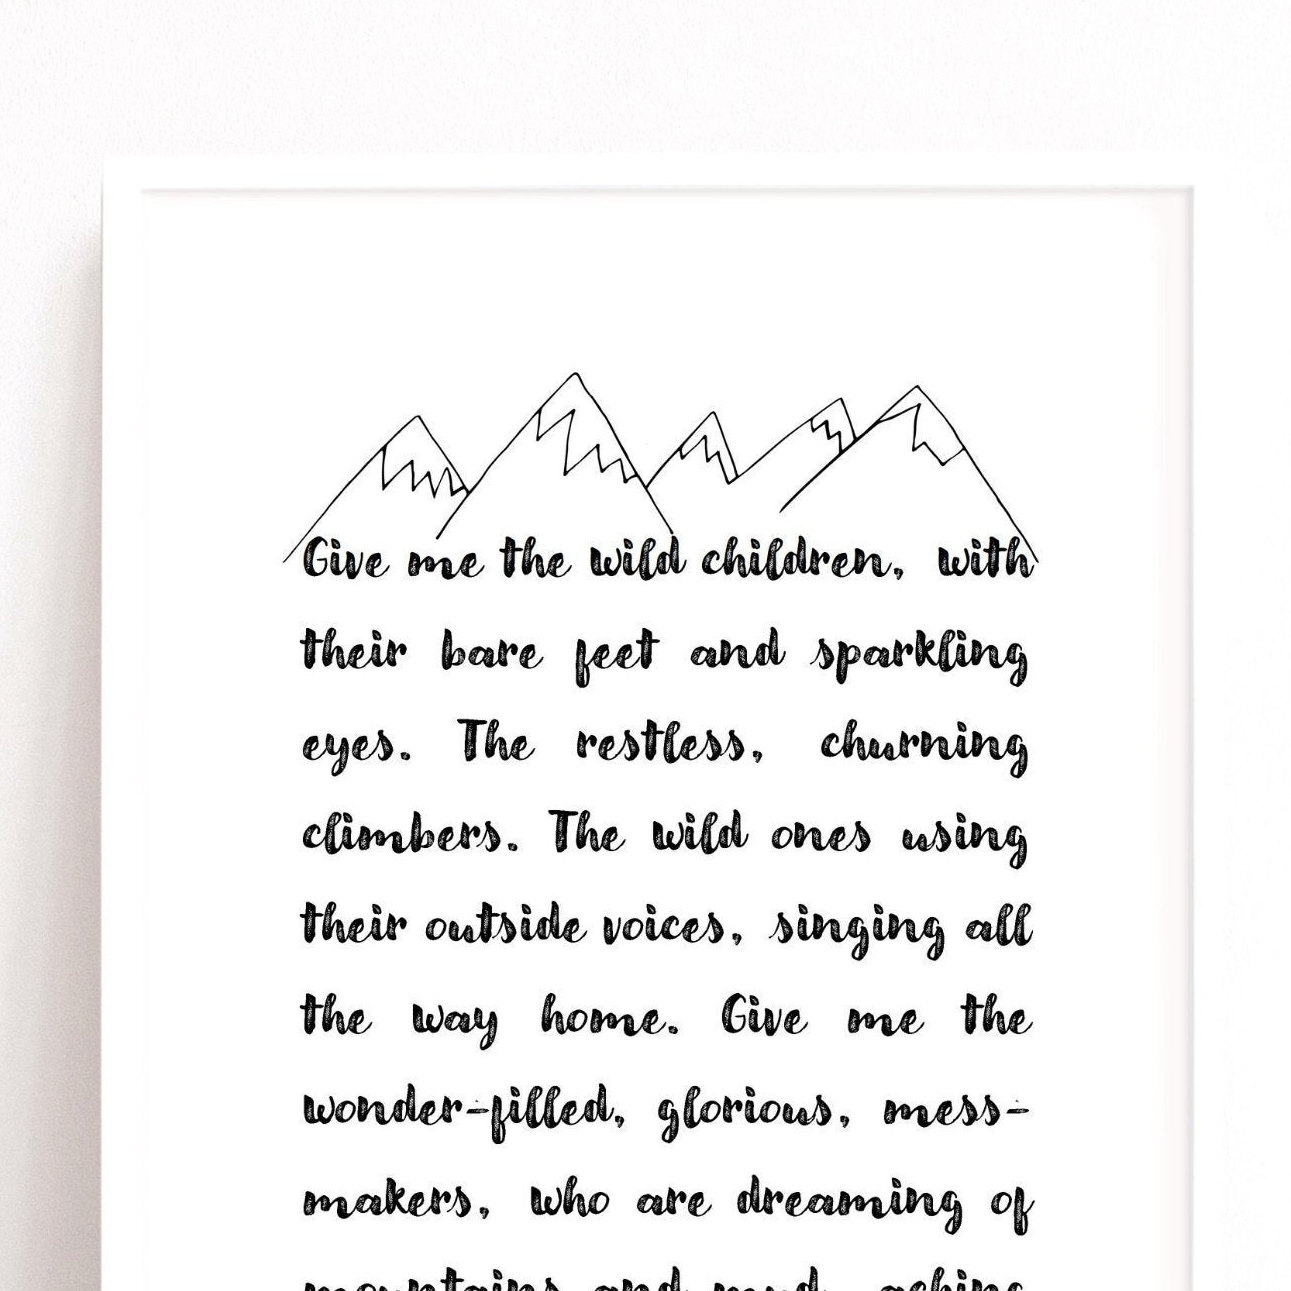 Give me the wild children, with
their bare feet and sparkling
eyes. The restless, churning
climbers. The wild ones using
their outside voices, singing all
the way home. Give me the
wonder-filled, glorious, mess-
makers, who are dreaming of
mountains and mud, aching